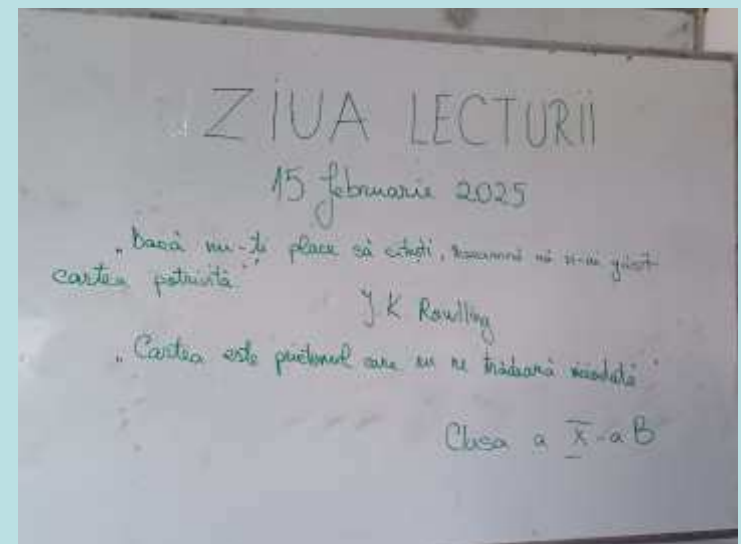 ZIUA LECTURII
15 februarie 2025
„Dacă nu-ți place să citești, înseamnă că n-ai găsit
cartea potrivită”
J.K Rowlling
„Cartea este prietenul care nu ne trădează niciodată”
Clasa a X-a B